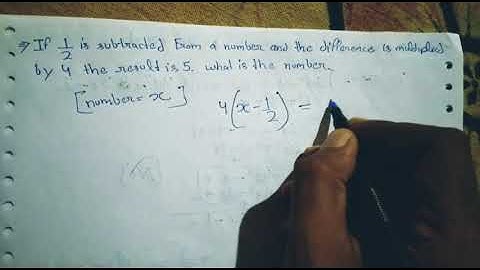 ⇒ If 1/2 is subtracted from a number and the difference is multiplied
by 4 the result is 5. what is the number.
[number = x] 4(x - 1/2) =